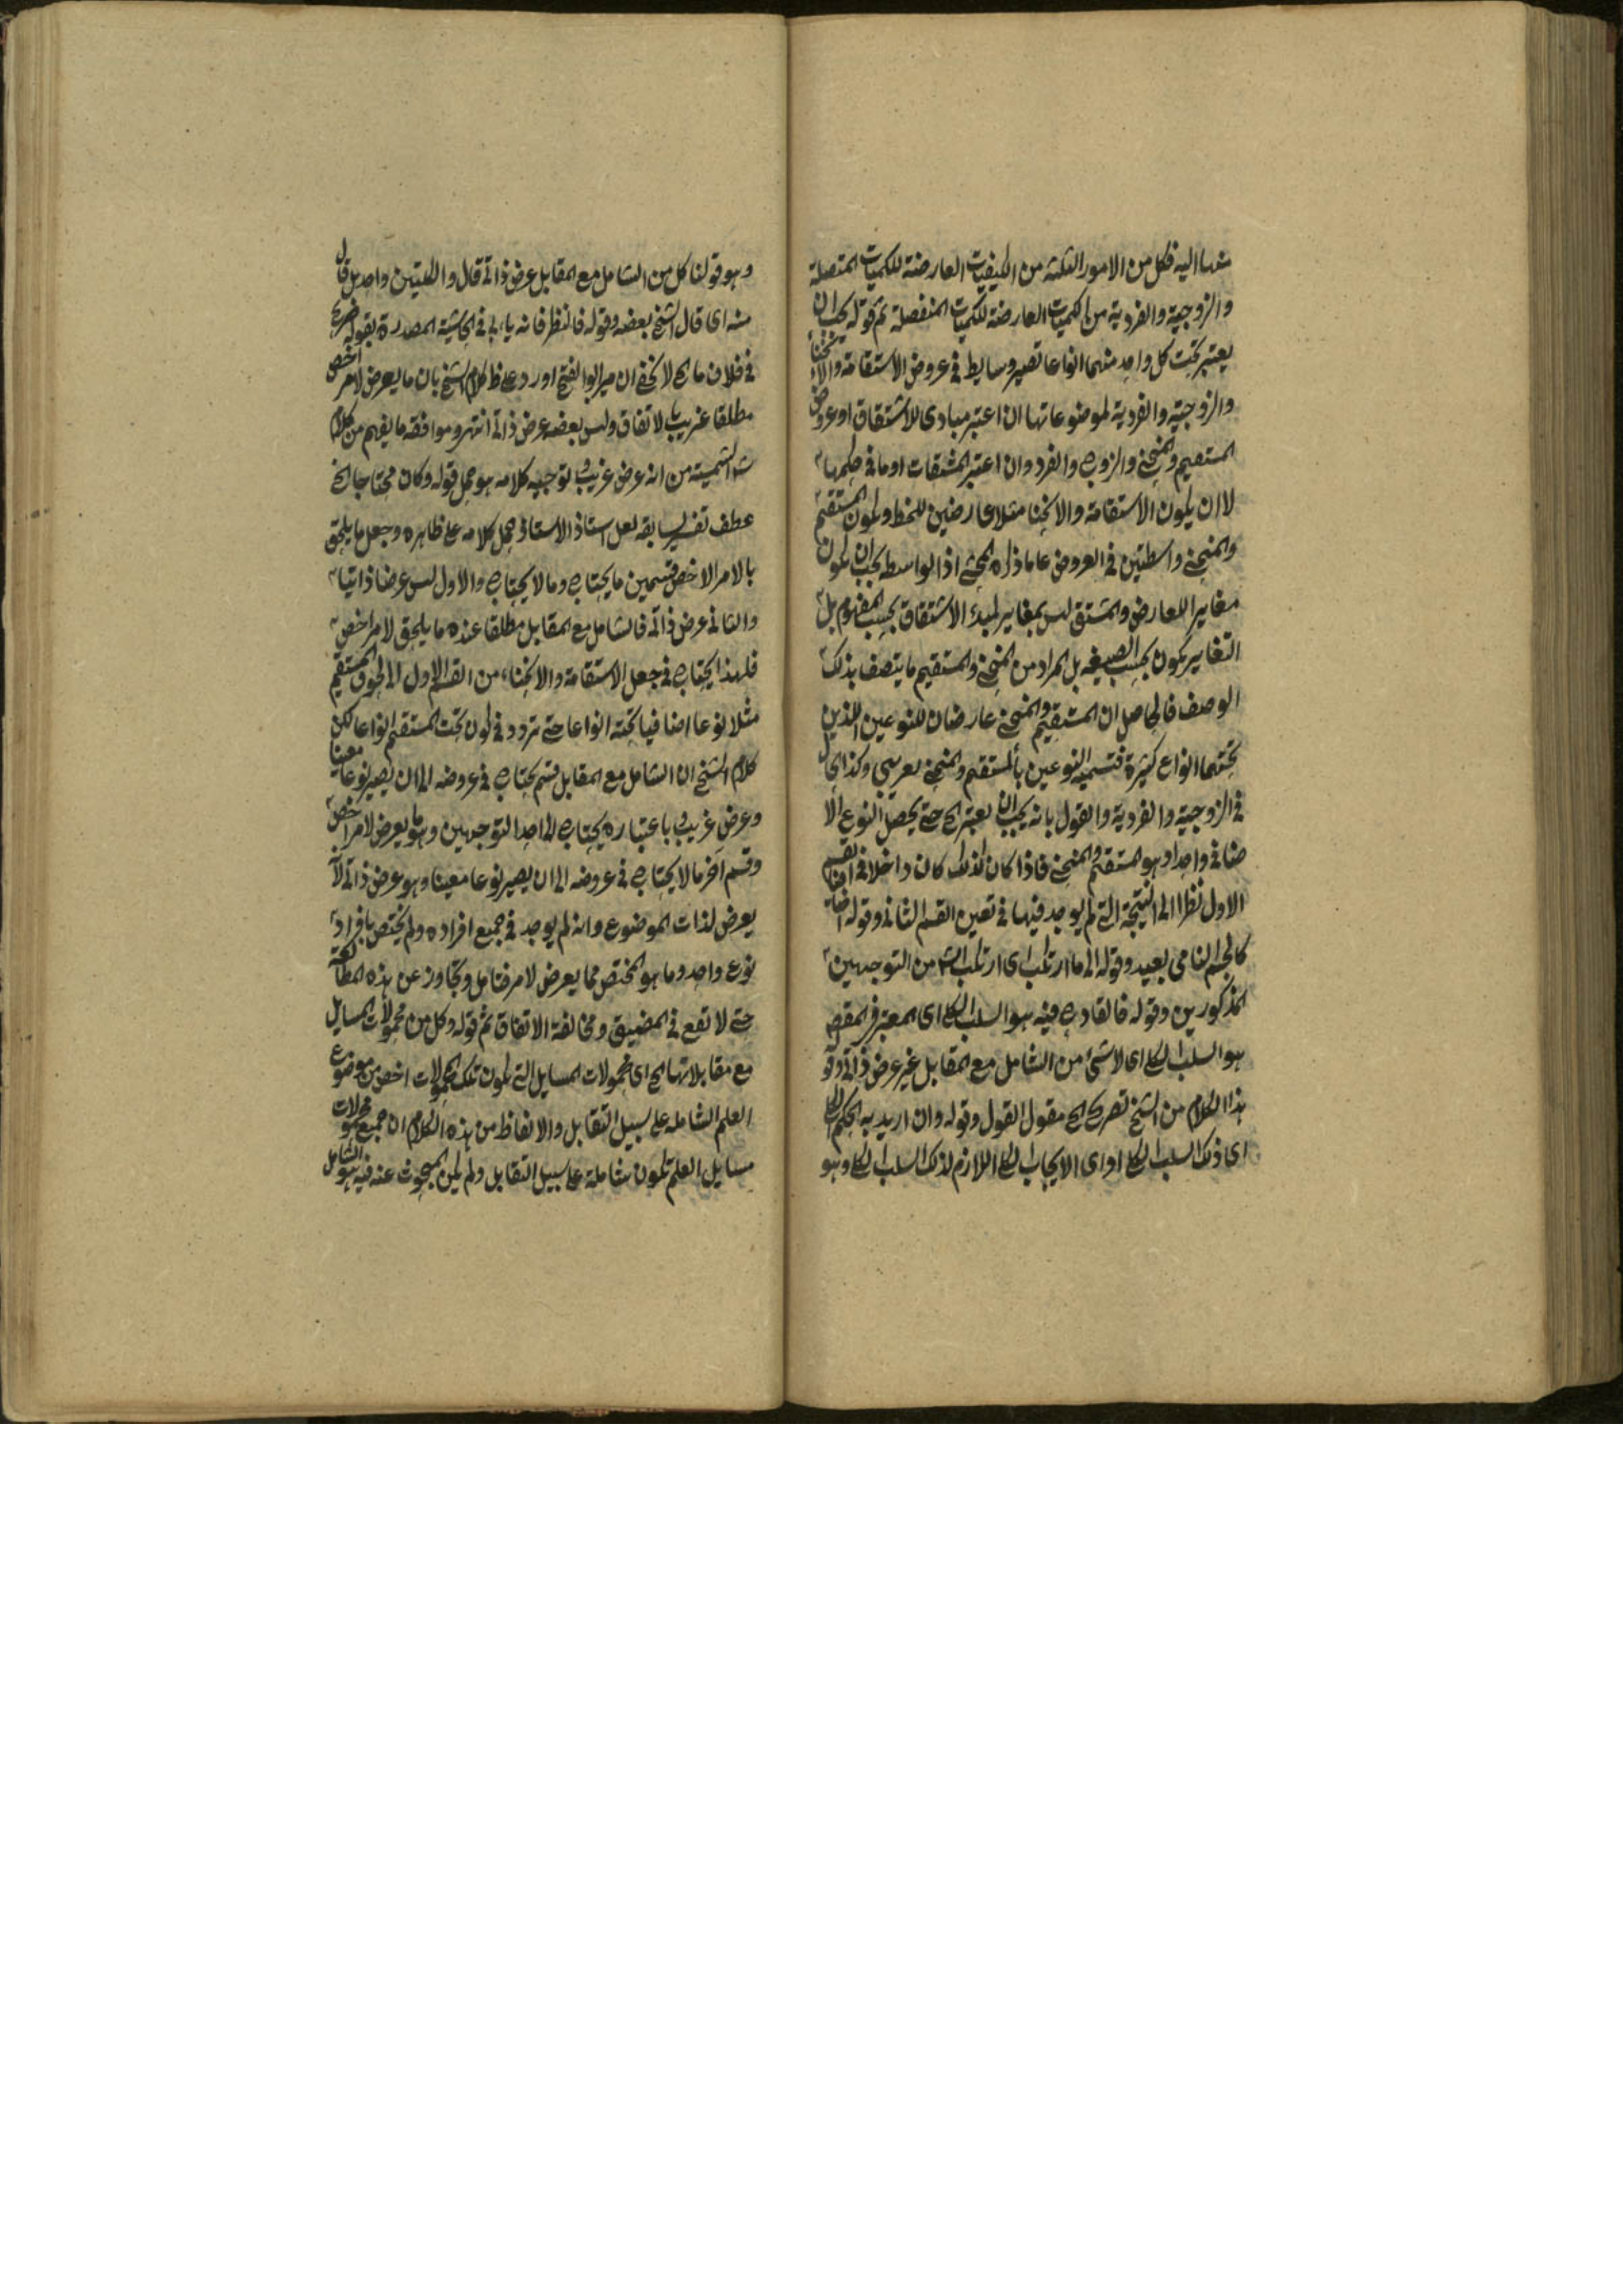 منها اليه فكل من الامور الثلثة من الكيفيات العارضة للكميات المتصلة
والزوجية والفردية من الكميات العارضة للكميات المنفصلة ثم قوله يجب ان
يعتبر تحت كل واحد منهما انواعا تصير وسايط في عروض الاستقامة والانحناء
والزوجية والفردية لموضوعاتها ان اعتبر مبادى للاشتقاق او عروض
المستقيم والمنحنى والزوج والفرد وان اعتبر المشتقات او ما في حكمها
لا ان يكون الاستقامة والانحنا مثلا عارضين للخط ويكون المستقيم
والمنحنى واسطتين في العروض على ما ذكره المحشى اذ الواسطه يجب ان يكون
مغايرا للعارض والمشتق ليس بمغاير لمبدء الاشتقاق بحسب المفهوم بل
التغاير يكون بحسب الصيغه بل المراد من المنحنى والمستقيم ما يتصف بذلك
الوصف فالحاصل ان المستقيم والمنحنى عارضان للنوعين اللذين
تحتهما انواع كثيرة فتسمية النوعين بالمستقيم والمنحنى بعرضى وكذا الحال
في الزوجية والفردية والقول بانه يجب ان يعتبر الخ حتى يحصل النوع الا
ضافى واحد او هو المستقيم والمنحنى فاذا كان كذلك كان داخلا في القسم
الاول نظرا الى النتيجة التى لم يوجد فيها في تعين القسم الثانى وقوله اضافيا
كالجسم النامى بعيد وقوله الى ما ارتكب اى ارتكب الش من التوجهين
المذكورين وقوله فالقادح فيه هو السلب الكلى اى المعتبر في المقص
هو السلب الكلى اى لا شئ من الشامل مع المقابل غير عرض ذاتى وقو
هذا الكلام من الشيخ تصريح الخ مقول القول وقوله وان اريد به الحكم الكلى
اى ذلك السلب الكلى او اى الايجاب الكلى اللازم لذلك السلب الكلى وهو
وهو قولنا كل من الشامل مع المقابل عرض ذاتى قال والكليتين واحد بل قال
منه اى قال الشيخ بعضه وقوله فانظر فانه ياء بى في الحاشية المصدرة بقوله
في خلاف ما الخ لا يخفى ان مير ابو الفتح اورد على ظ كلام الشيخ بان ما يعرض لامر اخص
مطلقا غريب بالاتفاق وليس بعضه عرض ذاتى انتهى وموافقه ما يفهم من كلام
ش الشمسية من انه عرض غريب وتوجيه كلامه هو حمل قوله وكان محتاجا الخ
عطف تفسير لسابقه لعل استاذ الاستاذ حمل كلامه على ظاهره وجعل ما يلحق
بالامر الاخص قسمين ما يحتاج وما لا يحتاج والاول ليس عرضا ذاتيا
والثانى عرض ذاتى فالشامل مع المقابل مطلقا عنده ما يلحق لامر اخص
فلهذا يحتاج في جعل الاستقامة والانحناء من القسم الاول الى لحوق المستقيم
مثلا نوعا اضافيا تحته انواعا حتى تردد في كون تحت المستقيم انواعا لكن
كلام الشيخ ان الشامل مع المقابل قسم يحتاج في عروضه الى ان يصير نوعا معينا
وعرض غريب وباعتباره يحتاج الى احد التوجهين وهو ما يعرض لامر اخص
وقسم اخر ما لا يحتاج في عروضه الى ان يصير نوعا معينا وهو عرض ذاتى لا
يعرض لذات الموضوع وان لم يوجد في جميع افراده ولم يختص بافراد
نوع واحد وما هو المختص مما يعرض لامر فتامل وتجاوز عن هذه المطالعة
حتى لا تقع في المضيق ومخالفة الاتفاق ثم قوله وكل من محمولات المسايل
مع مقابلاتها الخ اى محمولات المسايل التى يكون تلك المحمولات اخص من موضوع
العلم الشامله على سبيل التقابل والا يفاظ من هذه الكلام ان جميع محمولات
مسايل العلم تكون شاملة على سبيل التقابل ولم يكن المبحوث عنه فيه هو الشامل